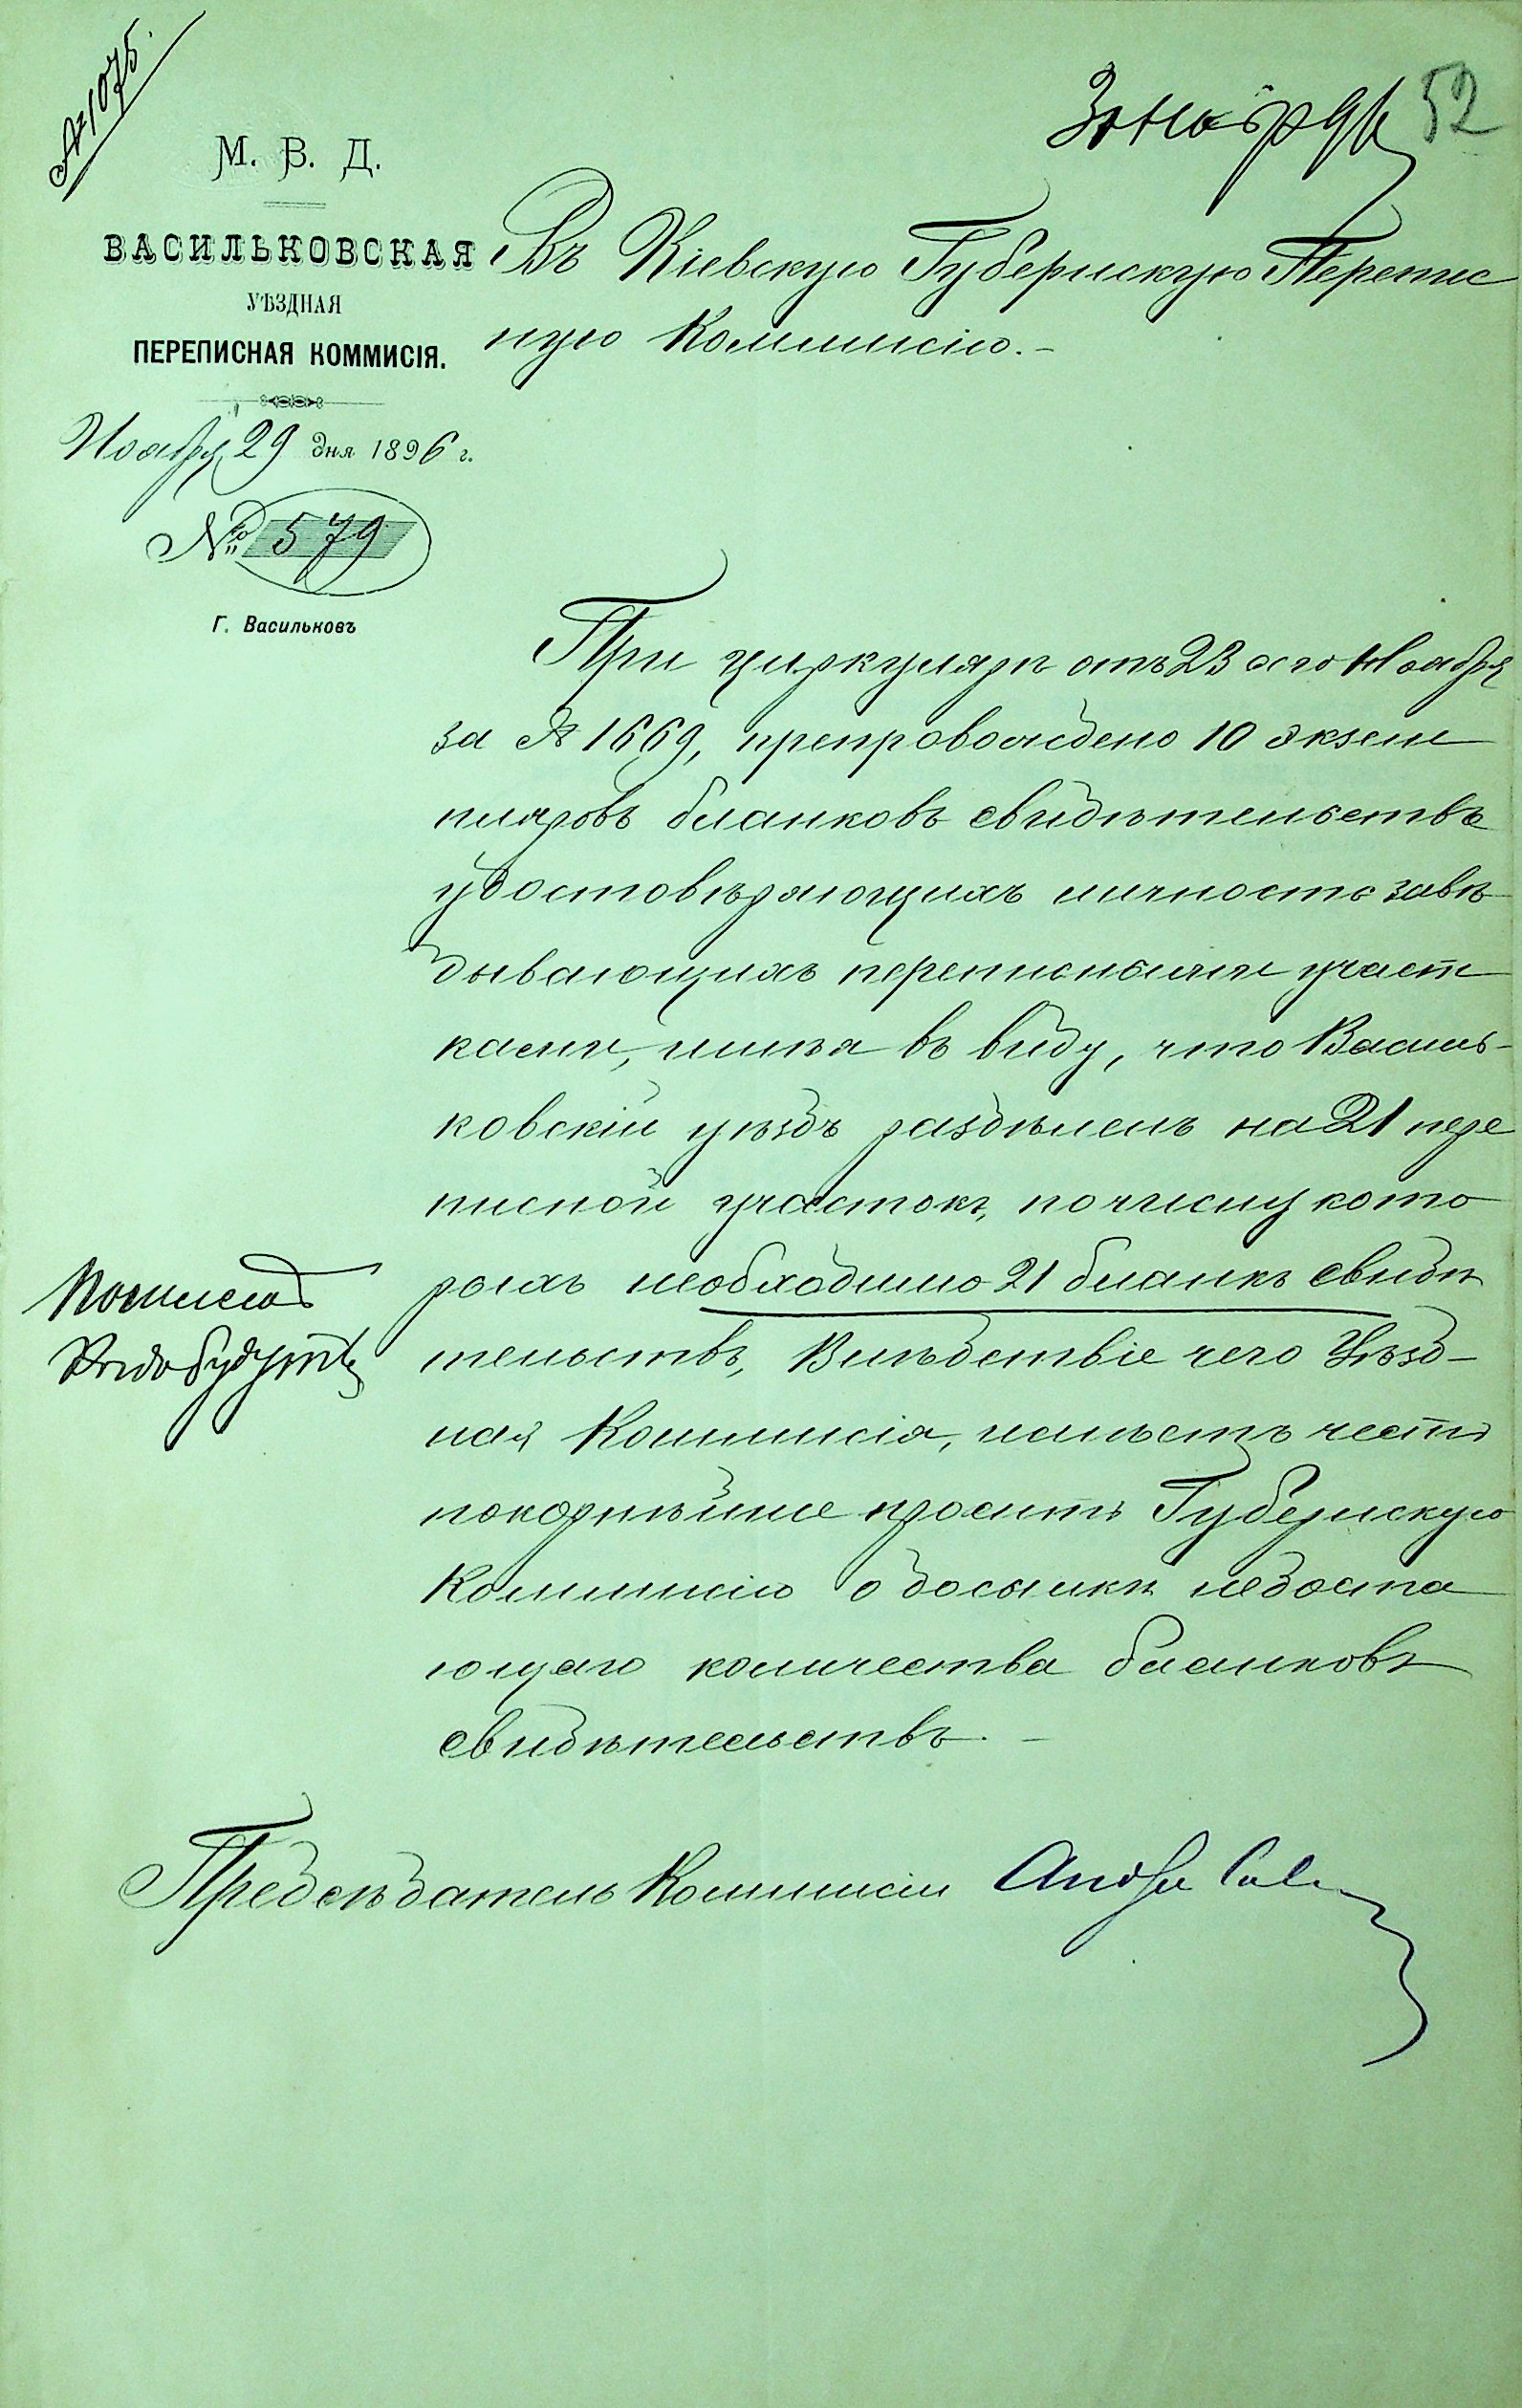 № 1075.
52
М. В. Д.
ВАСИЛЬКОВСКАЯ
УѢЗДНАЯ
ПЕРЕПИСНАЯ КОММИСІЯ.
Ноября 29 дня 1896 г.
№ 579
Г. Васильковъ
Въ Кіевскую Губернскую Перепис
ную Коммисію.-
При циркулярѣ отъ 23 сего Ноября
за № 1669, препровождено 10 экзем
пляровъ бланковъ свидѣтельствъ
удостовѣряющихъ личность завѣ
дывающихъ переписными участ
ками, имѣя въ виду, что Василь-
ковскій уѣздъ раздѣленъ на 21 пере
писной участокъ, по числу кото
рыхъ необходимо 21 бланкъ свидѣ
тельствъ, Вслѣдствіе чего Уѣзд-
ная Коммисія, имѣетъ честь
покорнѣйше просить Губернскую
Коммисію о досылкѣ недоста
ющаго количества бланковъ
свидѣтельствъ. -
Предсѣдатель Коммисіи